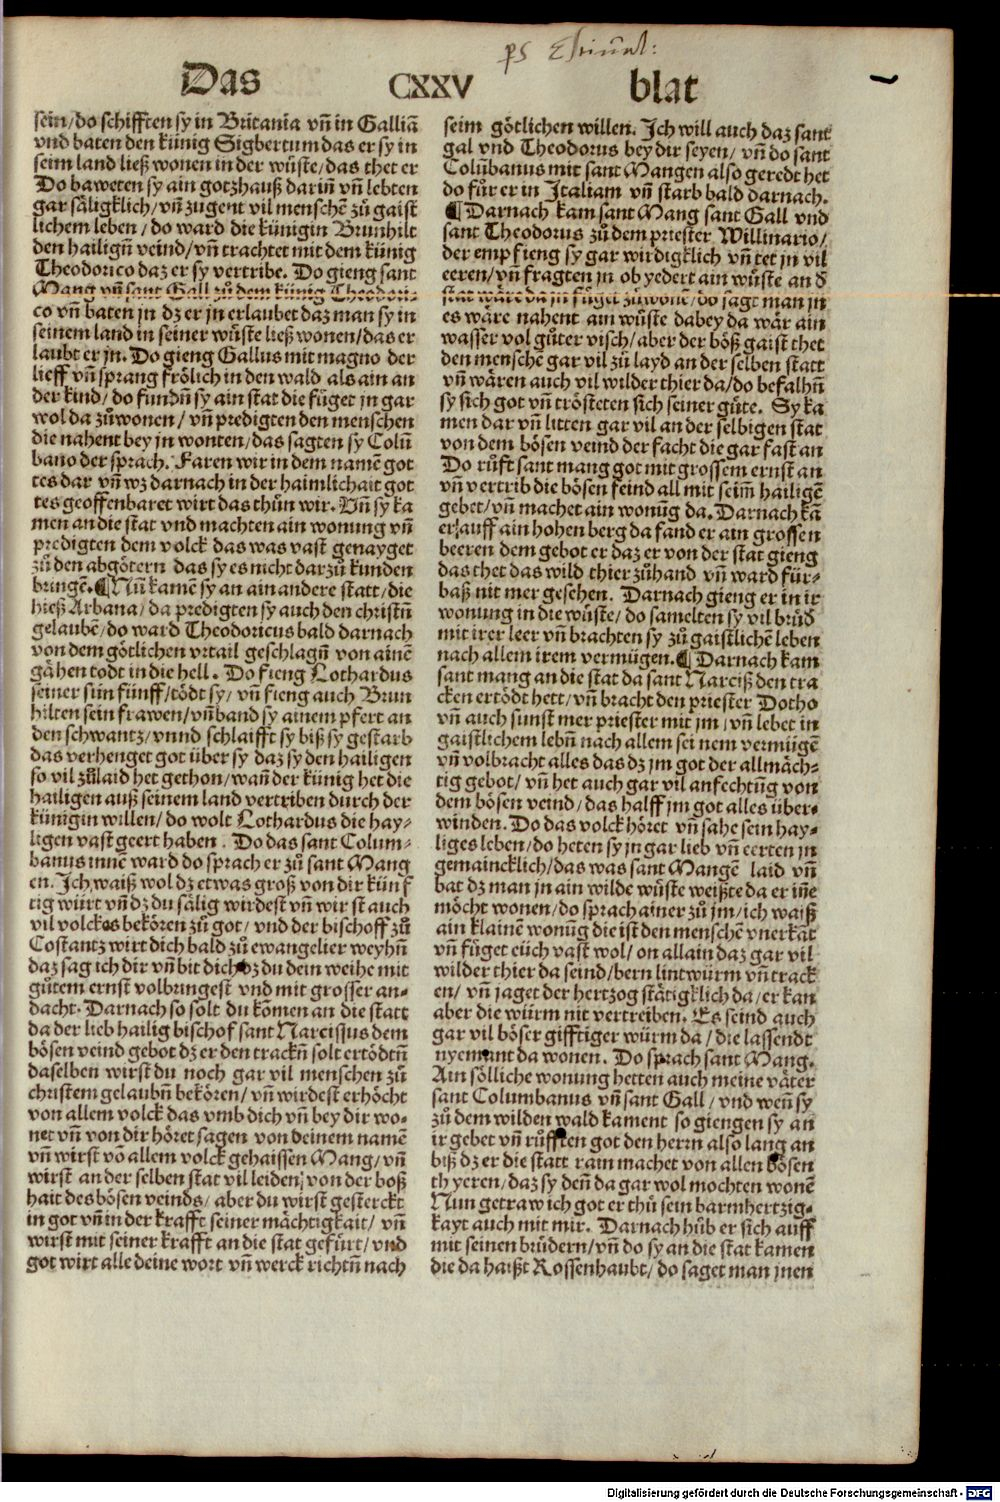 Das CXXV blat
sein/do schifften sy in Britania vñ in Galliã
vnd baten den künig Sigbertum das er sy in
seim land ließ wonen in der wüste/das thet er
Do baweten sy ain gotzhauß dariñ vñ lebten
gar säligklich/vñ zugent vil menschẽ zů gaist
lichem leben/do ward die künigin Brunhilt
den hailigñ veind/vñ trachtet mit dem künig
Theodorico daz er sy vertribe. Do gieng sant
Mang vñ sant Gall zů dem künig Theodori⸗
co vñ baten jn dz er jn erlaubet daz man sy in
seinem land in seiner wüste ließ wonen/das er
laubt er jn. Do gieng Gallus mit magno der
lieff vñ sprang frölich in den wald als ain an
der kind/do fundñ sy ain stat die füget jn gar
wol da zůwonen/vñ predigten den menschen
die nahent bey jn wonten/das sagten sy Colũ
bano der sprach. Faren wir in dem namẽ got
tes dar vñ wz darnach in der haimlichait got
tes geoffenbaret wirt das thůn wir. Vñ sy ka
men an die stat vnd machten ain wonung vñ
predigten dem volck das was vast genayget
zů den abgötern das sy es nicht darzů kunden
bringẽ. ¶Nũ kamẽ sy an ain andere statt/die
hieß Arbana/da predigten sy auch den christñ
gelaubẽ/do ward Theodoricus bald darnach
von dem götlichen vrtail geschlagñ von ainẽ
gähen todt in die hell. Do fieng Lothardus
seiner sün fünff/tödt sy/vñ fieng auch Brun
hilten sein frawen/vñ band sy ainem pfert an
den schwantz/vnnd schlaifft sy biß sy gestarb
das verhenget got über sy daz sy den hailigen
so vil zůlaid het gethon/wañ der künig het die
hailigen auß seinem land vertriben durch der
künigin willen/do wolt Lothardus die hay⸗
ligen vast geert haben. Do das sant Colum⸗
banus innẽ ward do sprach er zů sant Mang
en. Ich waiß wol dz etwas groß von dir künf
tig würt vñ dz du sälig wirdest vñ wirst auch
vil volckes bekören zů got/vnd der bischoff zů
Costantz wirt dich bald zů ewangelier weyhñ
daz sag ich dir vñ bit dich dz du dein weihe mit
gůtem ernst volbringest vnd mit grosser an⸗
dacht. Darnach so solt du kõmen an die statt
da der lieb hailig bischof sant Narcissus dem
bösen veind gebot dz er den trackñ solt ertödtñ
daselben wirst du noch gar vil menschen zů
christem gelaubñ bekören/vñ wirdest erhöcht
von allem volck das vmb dich vñ bey dir wo⸗
net vñ von dir höret sagen von deinem namẽ
vñ wirst võ allem volck gehaissen Mang/vñ
wirst an der selben stat vil leiden von der boß
hait des bösen veinds/aber du wirst gesterckt
in got vñ in der krafft seiner mächtigkait/vñ
wirst mit seiner krafft an die stat gefürt/vnd
got wirt alle deine wort vñ werck richtñ nach
seim götlichen willen. Ich will auch daz sant
gal vnd Theodorus bey dir seyen/vñ do sant
Colũbanus mit sant Mangen also geredt het
do fůr er in Italiam vñ starb bald darnach.
¶Darnach kam sant Mang sant Gall vnd
sant Theodorus zů dem priester Willinario/
der empfieng sy gar wirdigklich vñ tet jn vil
eeren/vñ fragten jn ob yedert ain wüste an d̕
stat wäre da jn füget zůwonẽ/do sagt man jn
es wäre nahent ain wüste dabey da wär ain
wasser vol gůter visch/aber der böß gaist thet
den menschẽ gar vil zů layd an der selben statt
vñ wären auch vil wilder thier da/do befalhñ
sy sich got vñ trösteten sich seiner güte. Sy ka
men dar vñ litten gar vil an der selbigen stat
von dem bösen veind der facht die gar fast an
Do růft sant mang got mit grossem ernst an
vñ vertrib die bösen feind all mit seim̃ hailigẽ
gebet/vñ machet ain wonũg da. Darnach kã
er auff ain hohen berg da fand er ain grossen
beeren dem gebot er daz er von der stat gieng
das thet das wild thier zůhand vñ ward für⸗
baß nit mer gesehen. Darnach gieng er in ir
wonung in die wüste/do samelten sy vil brüd̕
mit irer leer vñ brachten sy zů gaistlichẽ leben
nach allem irem vermügen. ¶Darnach kam
sant mang an die stat da sant Narciß den tra
cken ertödt hett/vñ bracht den priester Dotho
vñ auch sunst mer priester mit jm/vñ lebet in
gaistlichem lebñ nach allem sei nem vermügẽ
vñ volbracht alles das dz jm got der allmäch⸗
tig gebot/vñ het auch gar vil anfechtũg von
dem bösen veind/das halff jm got alles über⸗
winden. Do das volck höret vñ sahe sein hay⸗
liges leben/do heten sy jn gar lieb vñ eerten jn
gemaincklich/das was sant Mangẽ laid vñ
bat dz man jn ain wilde wüste weißte da er iñe
möcht wonen/do sprach ainer zů jm/ich waiß
ain klainẽ wonũg die ist den menschẽ vnerkãt
vñ füget eüch vast wol/on allain daz gar vil
wilder thier da seind/bern lintwürm vñ track
en/vñ jaget der hertzog stätigklich da/er kan
aber die würm nit vertreiben. Es seind auch
gar vil böser gifftiger würm da/die lassendt
nyemant da wonen. Do sprach sant Mang.
Ain sölliche wonung hetten auch meine väter
sant Columbanus vñ sant Gall/vnd weñ sy
zů dem wilden wald kament so giengen sy an
ir gebet vñ růfften got den herrn also lang an
biß dz er die statt rain machet von allen bösen
thyeren/daz sy deñ da gar wol mochten wonẽ
Nun getraw ich got er thů sein barmhertzig⸗
kayt auch mit mir. Darnach hůb er sich auff
mit seinen brüdern/vñ do sy an die stat kamen
die da haißt Rossenhaubt/do saget man jnen
Digitalisierung gefördert durch die Deutsche Forschungsgemeinschaft - DFG